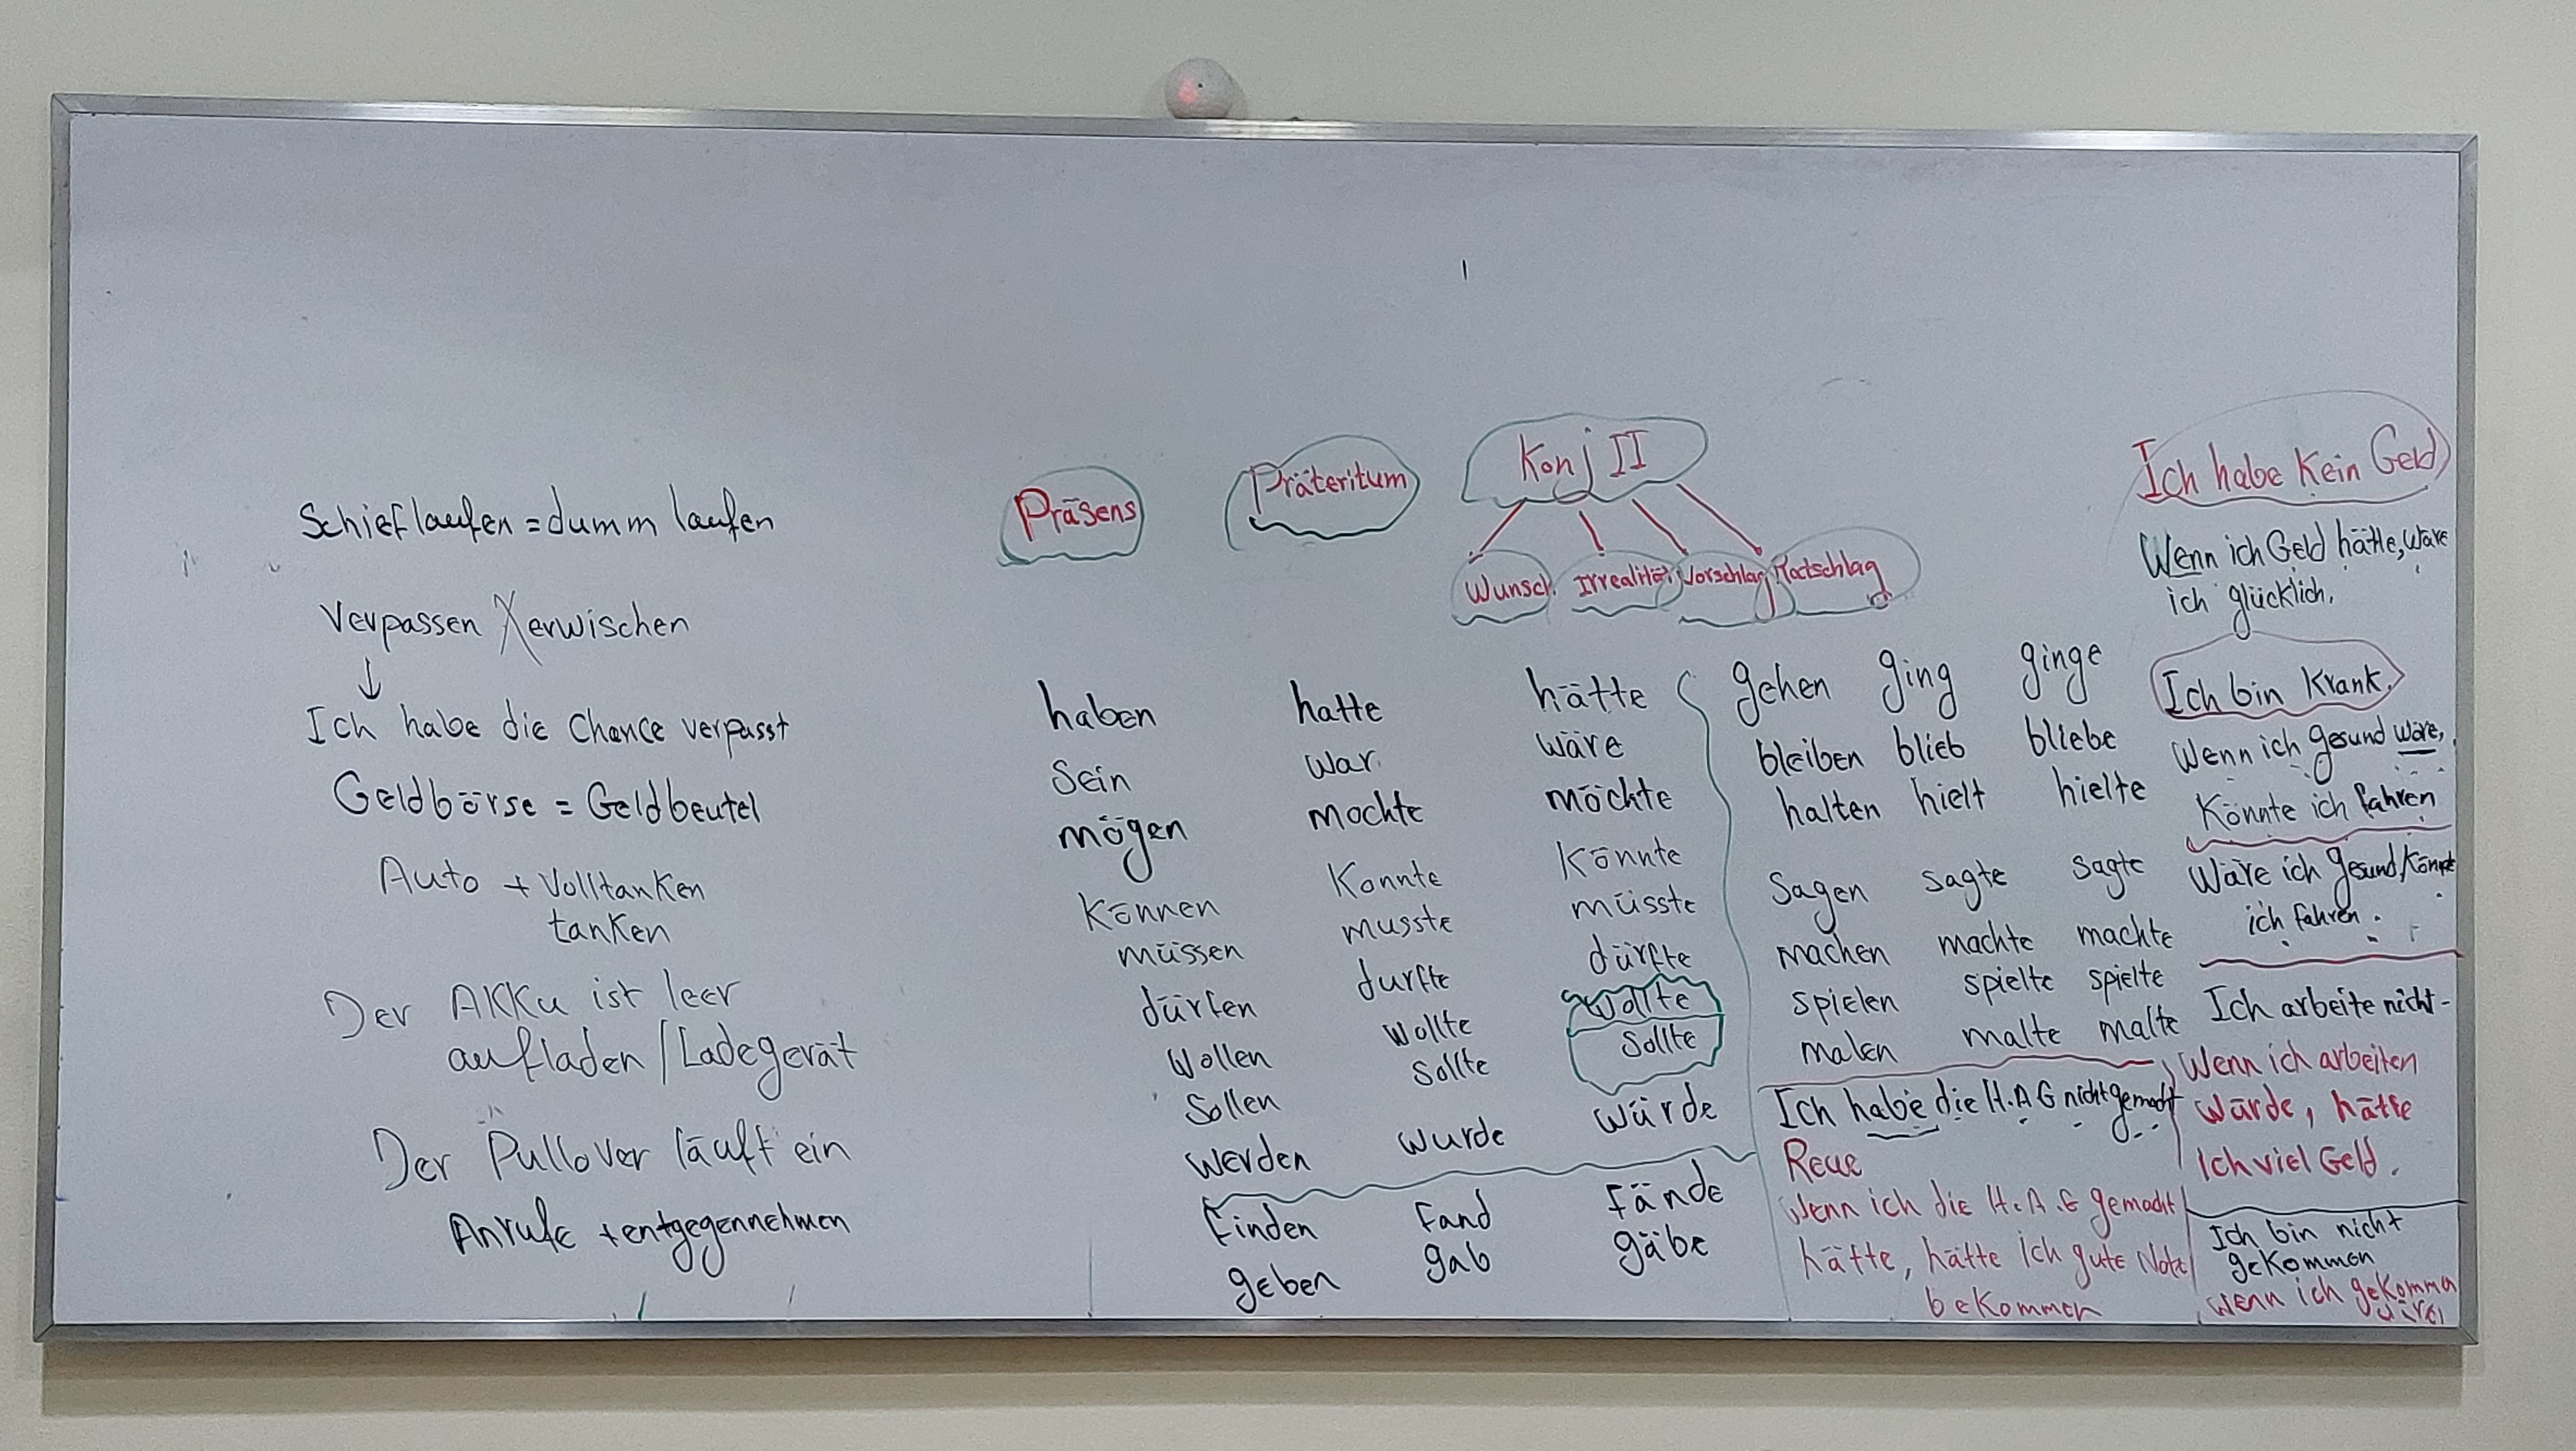 Schieflaufen = dumm laufen
Verpassen X erwischen
↓
Ich habe die Chance verpasst
Geldbörse = Geldbeutel
Auto + Volltanken
tanken
Der AKKu ist leer
aufladen / Ladegerät
Der Pullover läuft ein
Anrufe + entgegennehmen
Präsens Präteritum Konj II
Wunsch Irrealität Vorschlag Ratschlag
haben hatte hätte
Sein war wäre
mögen mochte möchte
Können Konnte Könnte
müssen musste müsste
dürfen durfte dürfte
Wollen wollte wollte
Sollen Sollte Sollte
werden wurde würde
finden fand fände
geben gab gäbe
gehen ging ginge
bleiben blieb bliebe
halten hielt hielte
Sagen sagte sagte
machen machte machte
spielen spielte spielte
malen malte malte
Ich habe die H.A G nicht gemacht
Reue
Wenn ich die H.A.G gemacht
hätte, hätte ich gute Note
beKommen
Ich habe Kein Geld
Wenn ich Geld hätte, wäre
ich glücklich.
Ich bin Krank.
Wenn ich gesund wäre,
Könnte ich fahren
Wäre ich gesund, Könnte
ich fahren.
Ich arbeite nicht-
Wenn ich arbeiten
würde, hätte
Ich viel Geld.
Ich bin nicht
geKommen
Wenn ich geKommen
wäre,